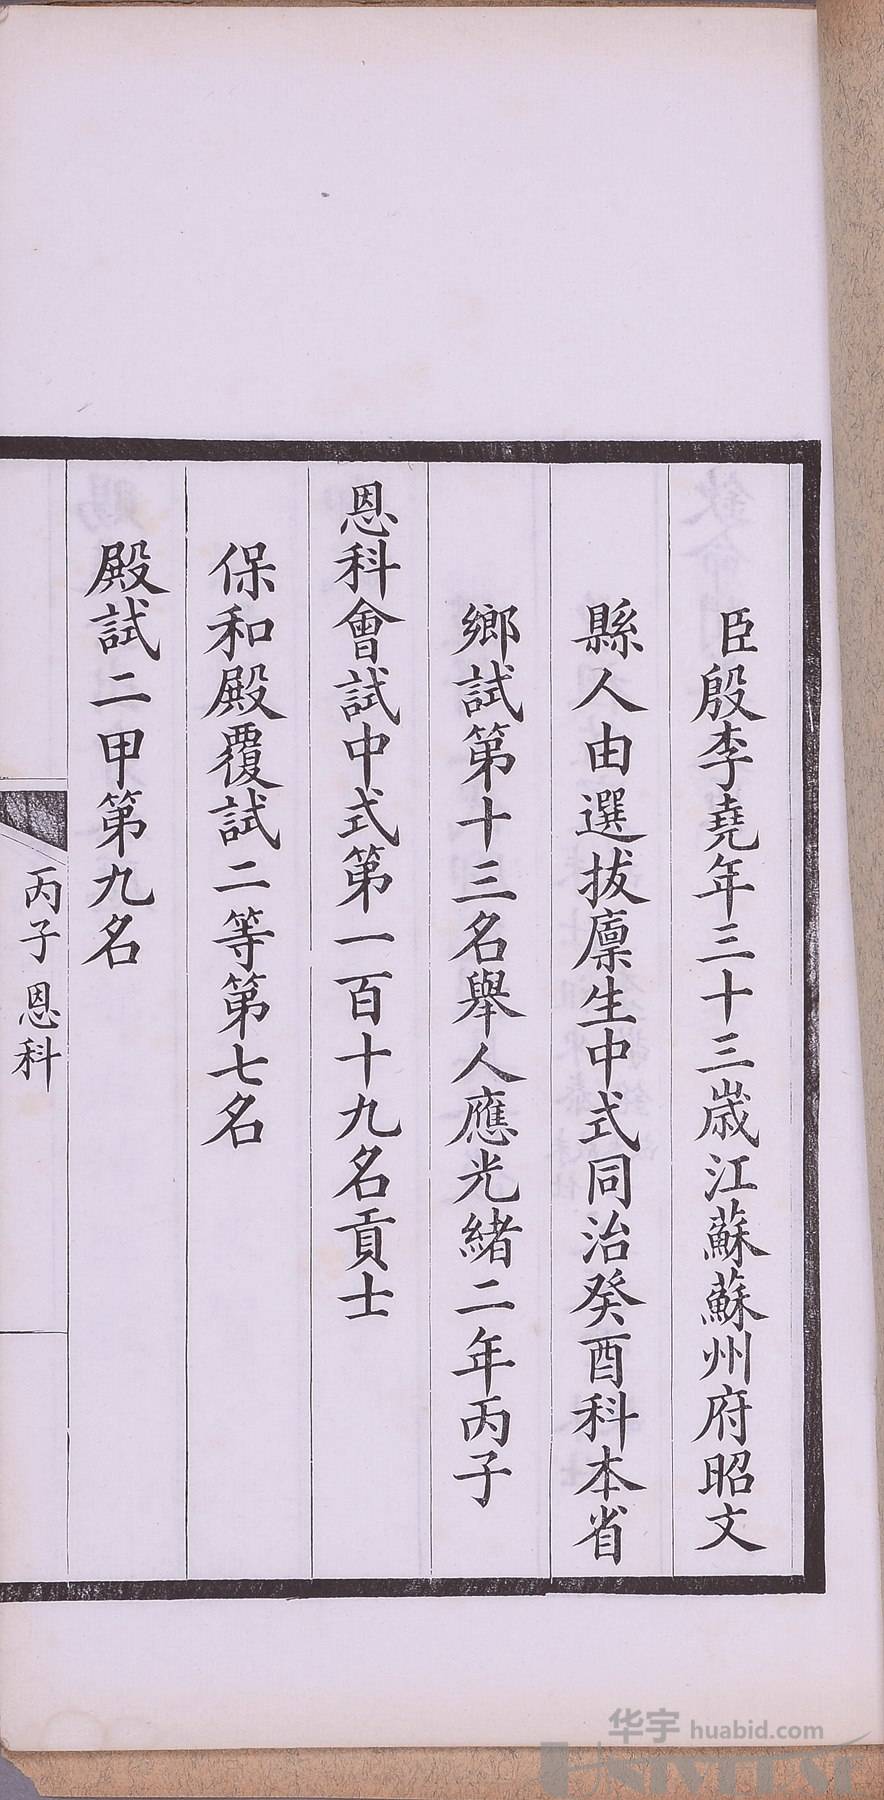 臣殷李堯年三十三歲江蘇蘇州府昭文
縣人由選拔廩生中式同治癸酉科本省
鄉試第十三名舉人應光緒二年丙子
恩科會試中式第一百十九名貢士
保和殿覆試二等第七名
殿試二甲第九名
丙子恩科
华宇 huabid.com
UNIVERSE